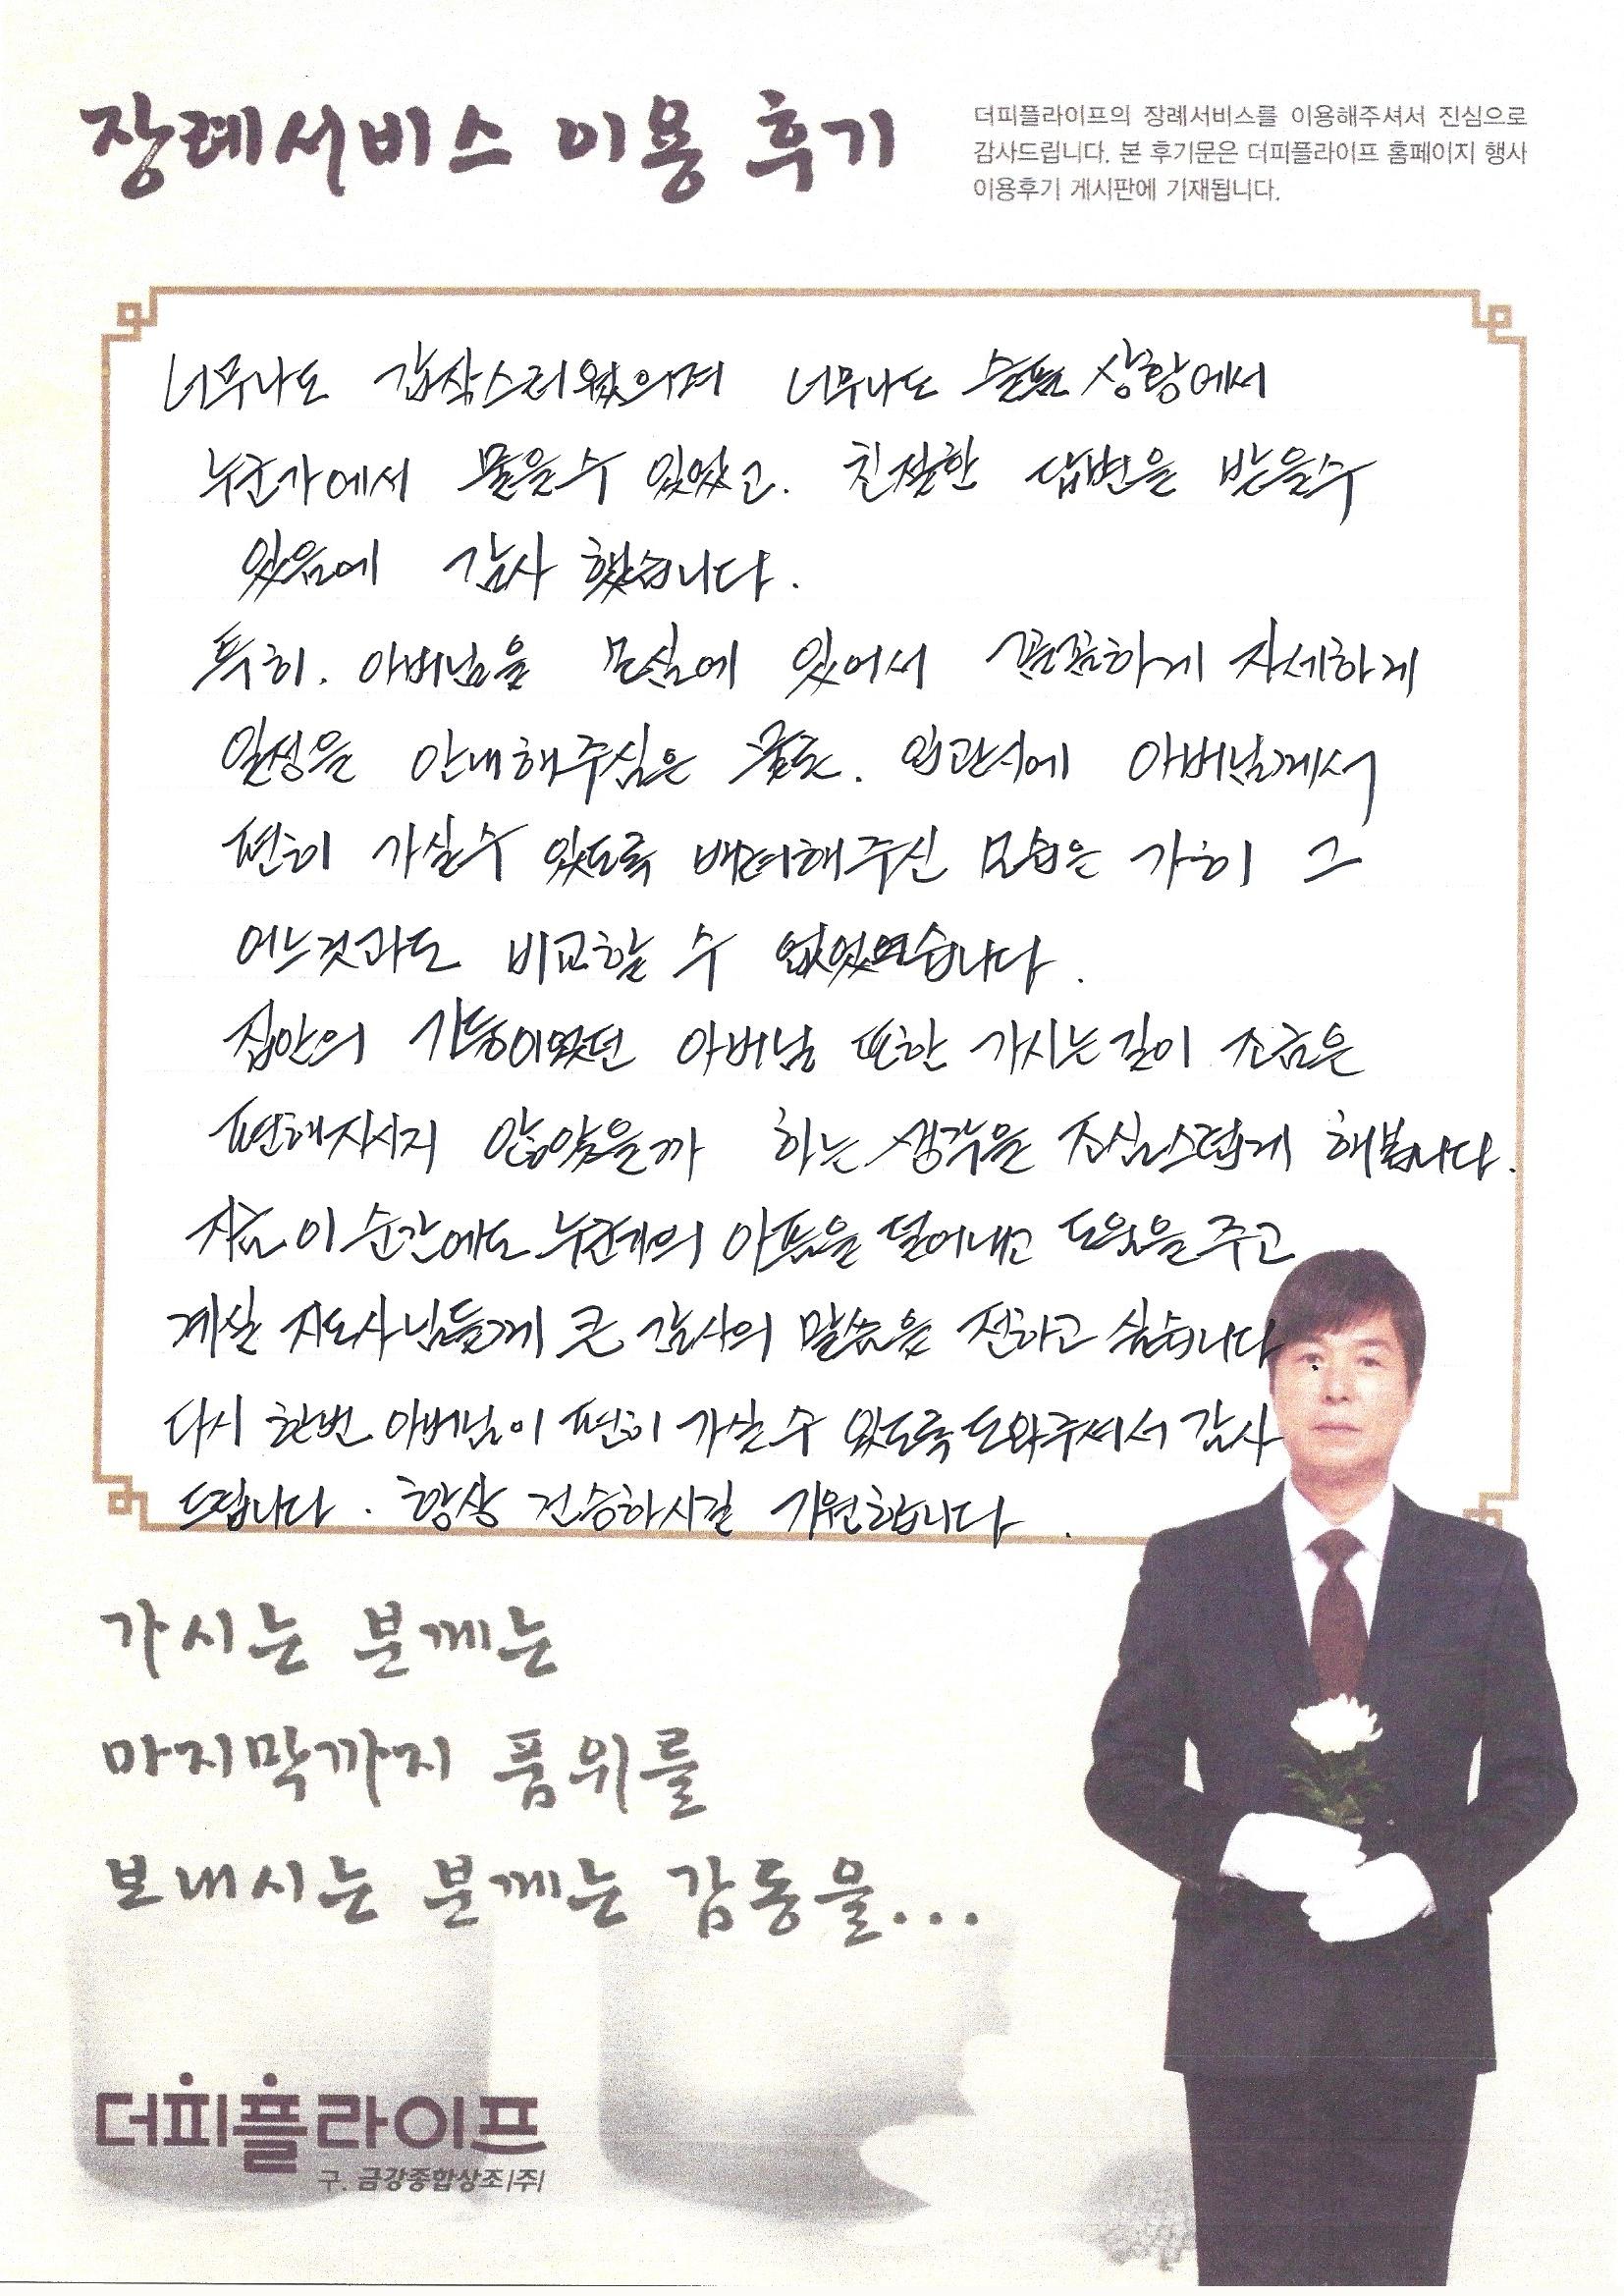 장례서비스 이용 후기
더피플라이프의 장례서비스를 이용해주셔서 진심으로
감사드립니다. 본 후기문은 더피플라이프 홈페이지 행사
이용후기 게시판에 기재됩니다.
너무나도 갑작스러웠으며 너무나도 슬픈 상황에서
누군가에서 물을수 있었고. 친절한 답변을 받을수
있음에 감사 했습니다.
특히. 아버님을 모심에 있어서 꼼꼼하게 자세하게
일정을 안내해주심은 물론. 입관시에 아버님께서
편히 가실수 있도록 배려해주신 모습은 가히 그
어느것과도 비교할 수 없었습니다.
집안의 기둥이었던 아버님 또한 가시는길이 조금은
편해지시지 않았을까 하는 생각을 조심스럽게 해봅니다.
지금 이 순간에도 누군가의 아픔을 덜어내고 도움을 주고
계실 지도사님들께 큰 감사의 말씀을 전하고 싶습니다.
다시 한번 아버님이 편히 가실수 있도록 도와주셔서 감사
드립니다. 항상 건승하시길 기원합니다.
가시는 분께는
마지막까지 품위를
보내시는 분께는 감동을...
더피플라이프
구. 금강종합상조(주)